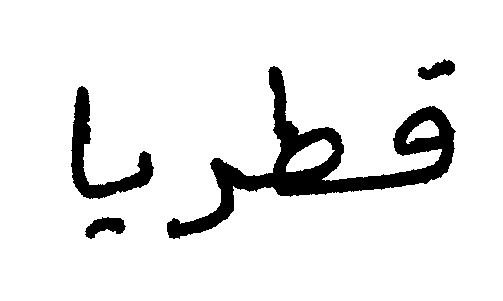 قطريا